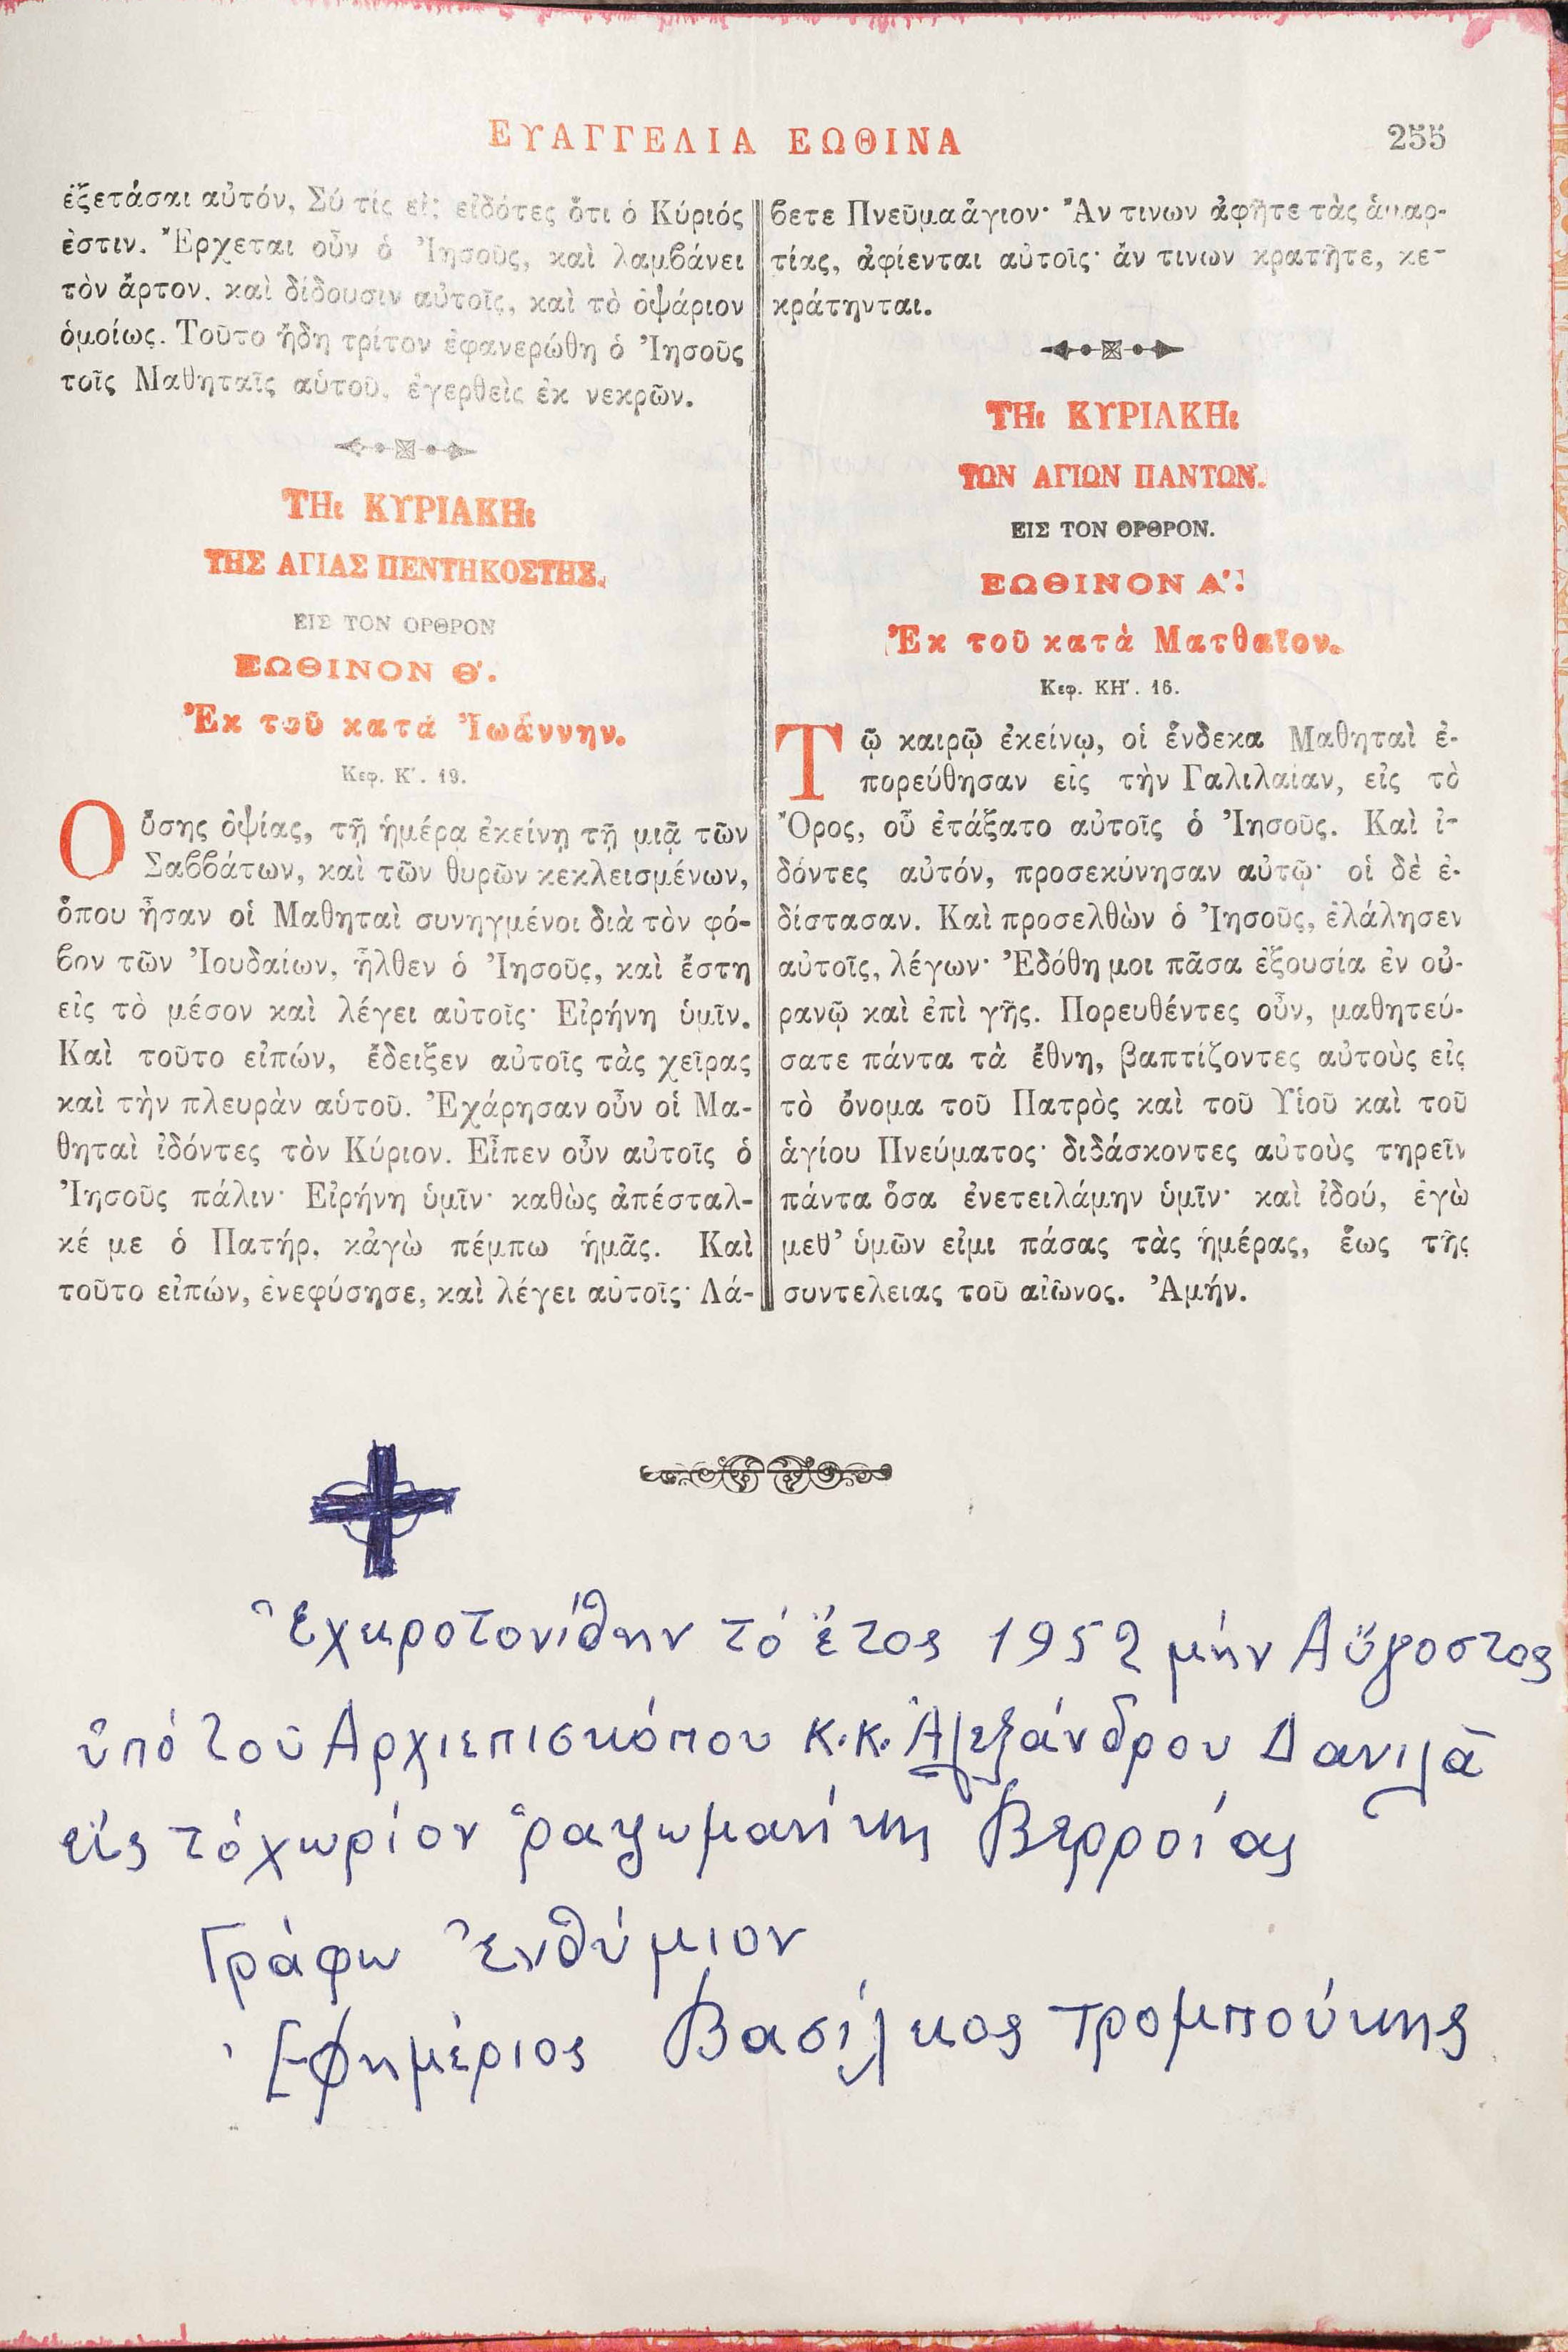 ΕΥΑΓΓΕΛΙΑ ΕΩΘΙΝΑ
255
ἐξετάσαι αὐτόν, Σύ τίς εἶ; εἰδότες ὅτι ὁ Κύριός
ἐστιν. Ἔρχεται οὖν ὁ Ἰησοῦς, καὶ λαμβάνει
τὸν ἄρτον, καὶ δίδουσιν αὐτοῖς, καὶ τὸ ὀψάριον
ὁμοίως. Τοῦτο ἤδη τρίτον ἐφανερώθη ὁ Ἰησοῦς
τοῖς Μαθηταῖς αὐτοῦ, ἐγερθεὶς ἐκ νεκρῶν.
ΤΗι ΚΥΡΙΑΚΗι
ΤΗΣ ΑΓΙΑΣ ΠΕΝΤΗΚΟΣΤΗΣ.
ΕΙΣ ΤΟΝ ΟΡΘΡΟΝ
ΕΩΘΙΝΟΝ Θ'.
Ἐκ τοῦ κατὰ Ἰωάννην.
Κεφ. Κ'. 19.
Οὔσης ὀψίας, τῇ ἡμέρᾳ ἐκείνῃ τῇ μιᾷ τῶν
Σαββάτων, καὶ τῶν θυρῶν κεκλεισμένων,
ὅπου ἦσαν οἱ Μαθηταὶ συνηγμένοι διὰ τὸν φό-
βον τῶν Ἰουδαίων, ἦλθεν ὁ Ἰησοῦς, καὶ ἔστη
εἰς τὸ μέσον καὶ λέγει αὐτοῖς· Εἰρήνη ὑμῖν.
Καὶ τοῦτο εἰπών, ἔδειξεν αὐτοῖς τὰς χεῖρας
καὶ τὴν πλευρὰν αὑτοῦ. Ἐχάρησαν οὖν οἱ Μα-
θηταὶ ἰδόντες τὸν Κύριον. Εἶπεν οὖν αὐτοῖς ὁ
Ἰησοῦς πάλιν· Εἰρήνη ὑμῖν· καθὼς ἀπέσταλ-
κέ με ὁ Πατήρ, κἀγὼ πέμπω ἡμᾶς. Καὶ
τοῦτο εἰπών, ἐνεφύσησε, καὶ λέγει αὐτοῖς· Λά-
βετε Πνεῦμα ἅγιον· Ἄν τινων ἀφῆτε τὰς ἁμαρ-
τίας, ἀφίενται αὐτοῖς· ἄν τινων κρατῆτε, κε-
κράτηνται.
ΤΗι ΚΥΡΙΑΚΗι
ΤΩΝ ΑΓΙΩΝ ΠΑΝΤΩΝ.
ΕΙΣ ΤΟΝ ΟΡΘΡΟΝ.
ΕΩΘΙΝΟΝ Α'.
Ἐκ τοῦ κατὰ Ματθαῖον.
Κεφ. ΚΗ'. 16.
Τῷ καιρῷ ἐκείνῳ, οἱ ἕνδεκα Μαθηταὶ ἐ-
πορεύθησαν εἰς τὴν Γαλιλαίαν, εἰς τὸ
Ὄρος, οὗ ἐτάξατο αὐτοῖς ὁ Ἰησοῦς. Καὶ ἰ-
δόντες αὐτόν, προσεκύνησαν αὐτῷ· οἱ δὲ ἐ-
δίστασαν. Καὶ προσελθὼν ὁ Ἰησοῦς, ἐλάλησεν
αὐτοῖς, λέγων· Ἐδόθη μοι πᾶσα ἐξουσία ἐν οὐ-
ρανῷ καὶ ἐπὶ γῆς. Πορευθέντες οὖν, μαθητεύ-
σατε πάντα τὰ ἔθνη, βαπτίζοντες αὐτοὺς εἰς
τὸ ὄνομα τοῦ Πατρὸς καὶ τοῦ Υἱοῦ καὶ τοῦ
ἁγίου Πνεύματος· διδάσκοντες αὐτοὺς τηρεῖν
πάντα ὅσα ἐνετειλάμην ὑμῖν· καὶ ἰδού, ἐγὼ
μεθ' ὑμῶν εἰμι πάσας τὰς ἡμέρας, ἕως τῆς
συντελειας τοῦ αἰῶνος. Ἀμήν.
Ἐχειροτονίθην τό ἔτος 1952 μήν Αὔγοστος
ὑπό τοῦ Αρχιεπισκόπου κ.κ. Ἀλεξάνδρου Δανιλᾶ
εἰς τό χωρίον ῥαψωμανίκη Βερροίας
Γράφω Ἐνθύμιον
Ἐφημέριος Βασίλκος τρομπούκης